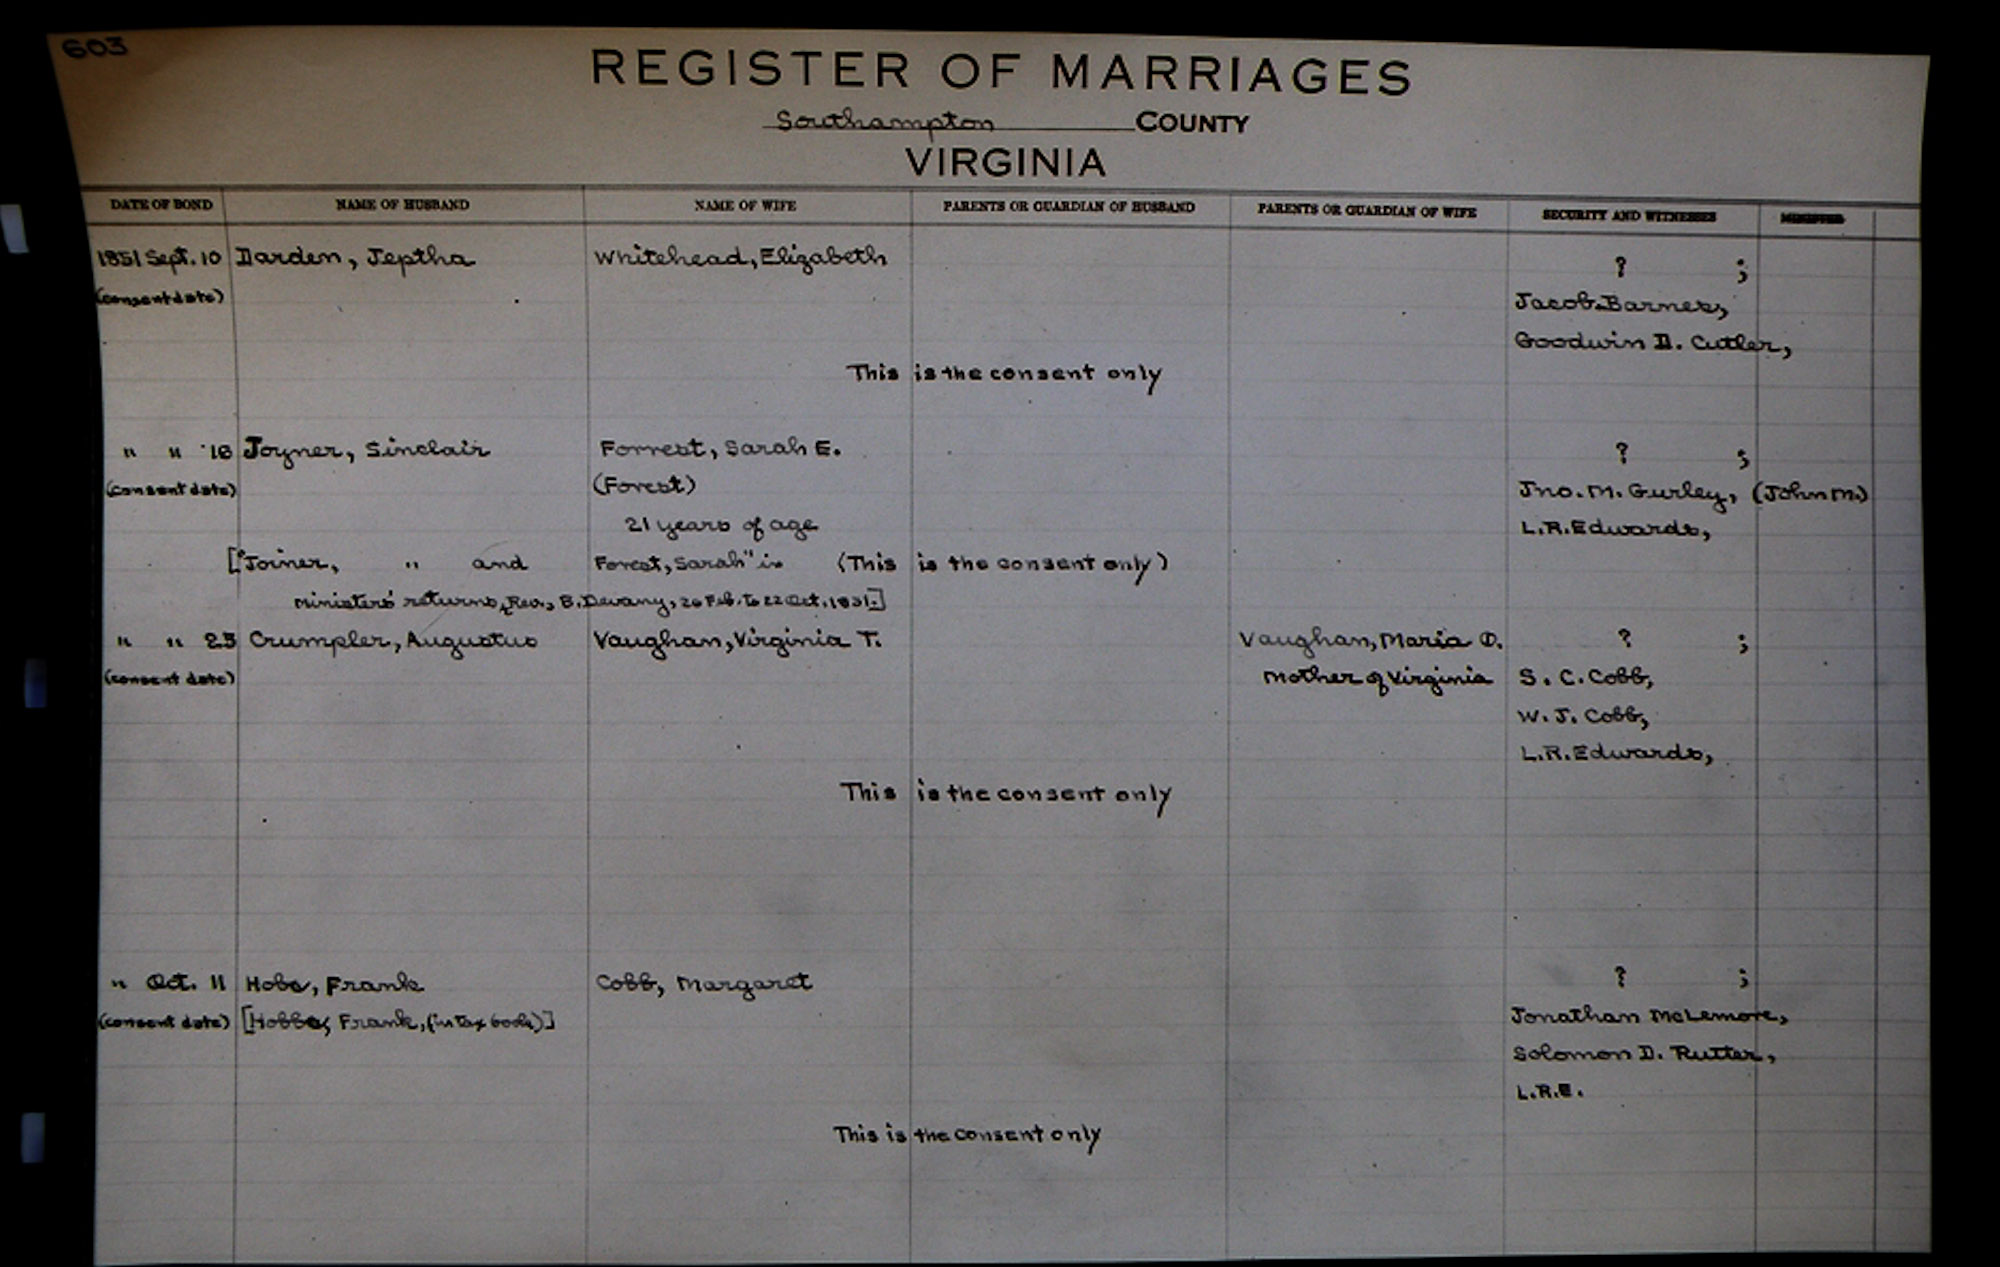 603
REGISTER OF MARRIAGES
Southampton COUNTY
VIRGINIA
DATE OF BOND NAME OF HUSBAND NAME OF WIFE PARENTS OR GUARDIAN OF HUSBAND PARENTS OR GUARDIAN OF WIFE SECURITY AND WITNESSES MINISTER
1851 Sept. 10 Darden, Jeptha Whitehead, Elizabeth ? ;
(consent date)
Jacob Barnes,
Goodwin D. Cutler,
This is the consent only
" " 18 Joyner, Sinclair Forrest, Sarah E. ? ;
(consent date) (Forest) Jno. M. Gurley, (John M.)
21 years of age L.R. Edwards,
["Joiner, " and Forest, Sarah" in (This is the consent only)
Ministers' returns, Rev. B. Devany, 26 Feb. to 22 Oct. 1851.]
" " 25 Crumpler, Augustus Vaughan, Virginia T. Vaughan, Maria O. ? ;
(consent date) mother of Virginia S. C. Cobb,
W. J. Cobb,
L.R. Edwards,
This is the consent only
" Oct. 11 Hobs, Frank Cobb, Margaret ? ;
(consent date) [Hobbs, Frank, (in tax books)] Jonathan McLemore,
Solomon D. Rutter,
L.R.E.
This is the consent only